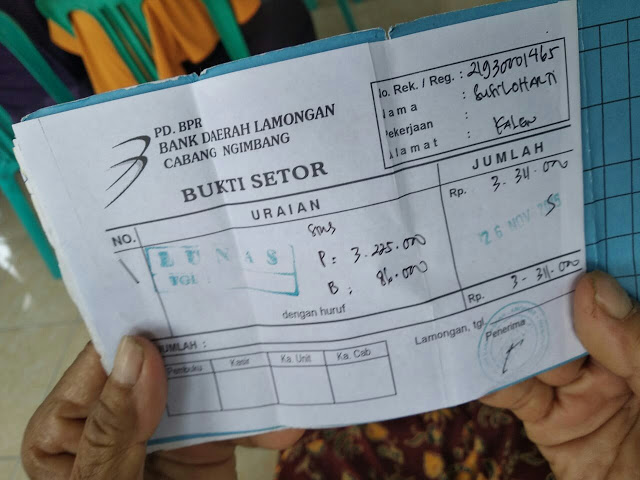 PD. BPR
BANK DAERAH LAMONGAN
CABANG NGIMBANG
BUKTI SETOR
No. Rek. / Reg. : 21930001465
Nama :
Pekerjaan :
Alamat : Kalen
NO. URAIAN JUMLAH
Rp. 3.311.000
LUNAS
TGL
P = 3.225.000
B : 86.000
26 NOV
dengan huruf
Rp. 3-311.000
JUMLAH :
Pembuku Kasir Ka. Unit Ka. Cab
Lamongan, tgl
Penerima